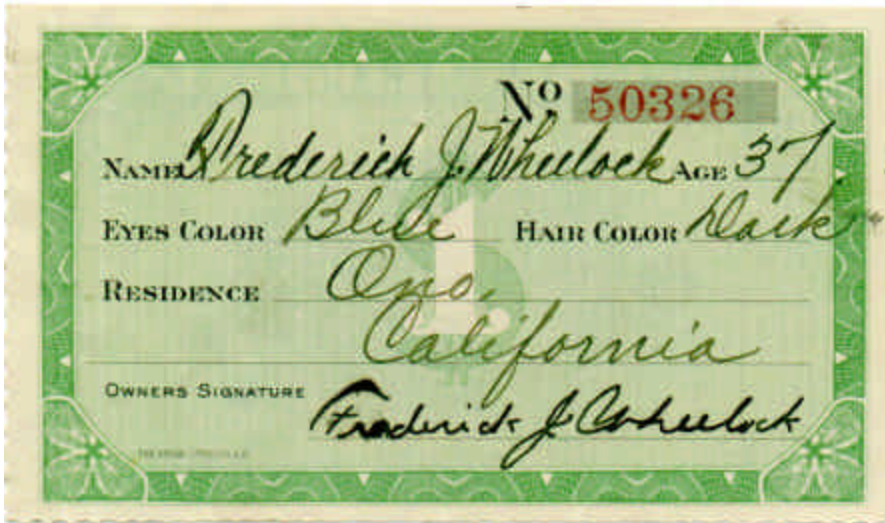 No 50326
NAME Frederick J. Wheelock AGE 37
EYES COLOR Blue HAIR COLOR Dark
RESIDENCE Ono,
California
$1.
OWNERS SIGNATURE Frederick J. Wheelock